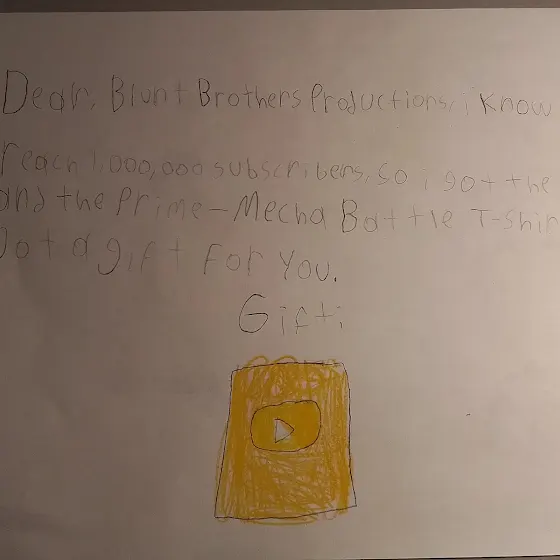 Dear, Blunt Brothers Productions, i know
reach 1,000,000 subscribers, so i got the
and the Prime-Mecha Battle T-shir
got a gift for you.
Gift: